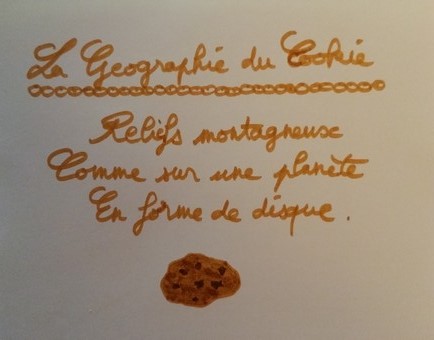 La Geographie du Cookie
Reliefs montagneuse
Comme sur une planète
En forme de disque.